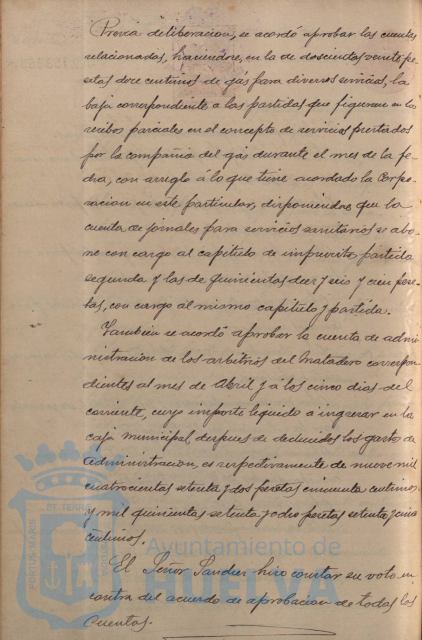 Previa deliberacion, se acordó aprobar las cuentas
relacionadas, haciendose, en la de doscientas veinte pe-
setas doce centimos de gás para diversos servicios, la
baja correspondiente a las partidas que figuran en los
recibos parciales en el concepto de servicios prestados
por la compañia del gás durante el mes de la fe-
cha, con arreglo á lo que tiene acordado la Corpo-
racion en este particular, disponiendose que la
cuenta de jornales para servicios sanitarios se abo-
ne con cargo al capitulo de imprevistos partida
segunda y las de quinientas diez y seis y cien pese-
tas, con cargo al mismo capitulo y partida.
Tambien se acordó aprobar la cuenta de admi-
nistracion de los arbitrios del Matadero correspon-
dientes al mes de Abril y á los cinco dias del
corriente, cuyo importe liquido a ingresar en la
caja municipal, despues de deducidos los gastos de
administracion, es respectivamente de nueve mil
cuatrocientas setenta y dos pesetas cincuenta centimos
y mil quinientas setenta y ocho pesetas setenta y cinco
centimos.
El Señor Sander hizo constar su voto en
contra del acuerdo de aprobacion de todas las
cuentas.
Ayuntamiento de